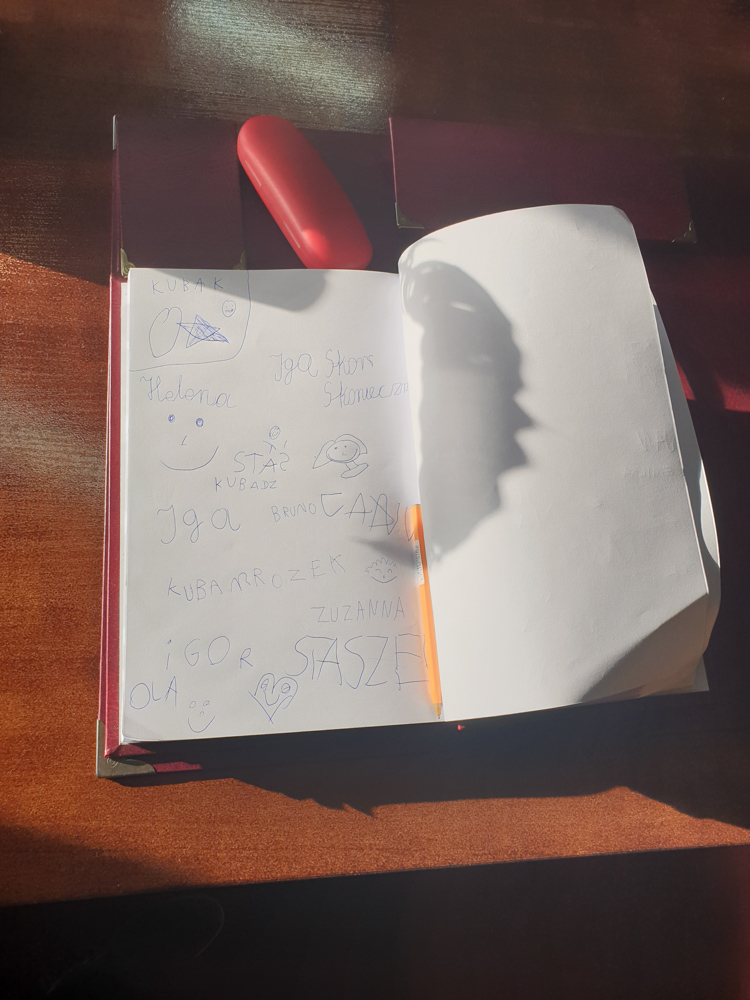 KUBA K
Helena
Iga Skon
Skonieczn
STAŚ
KUBA DZ
Iga
BRUNO
KUBA MROZEK
ZUZANNA
IGOR
STASZE
OLA